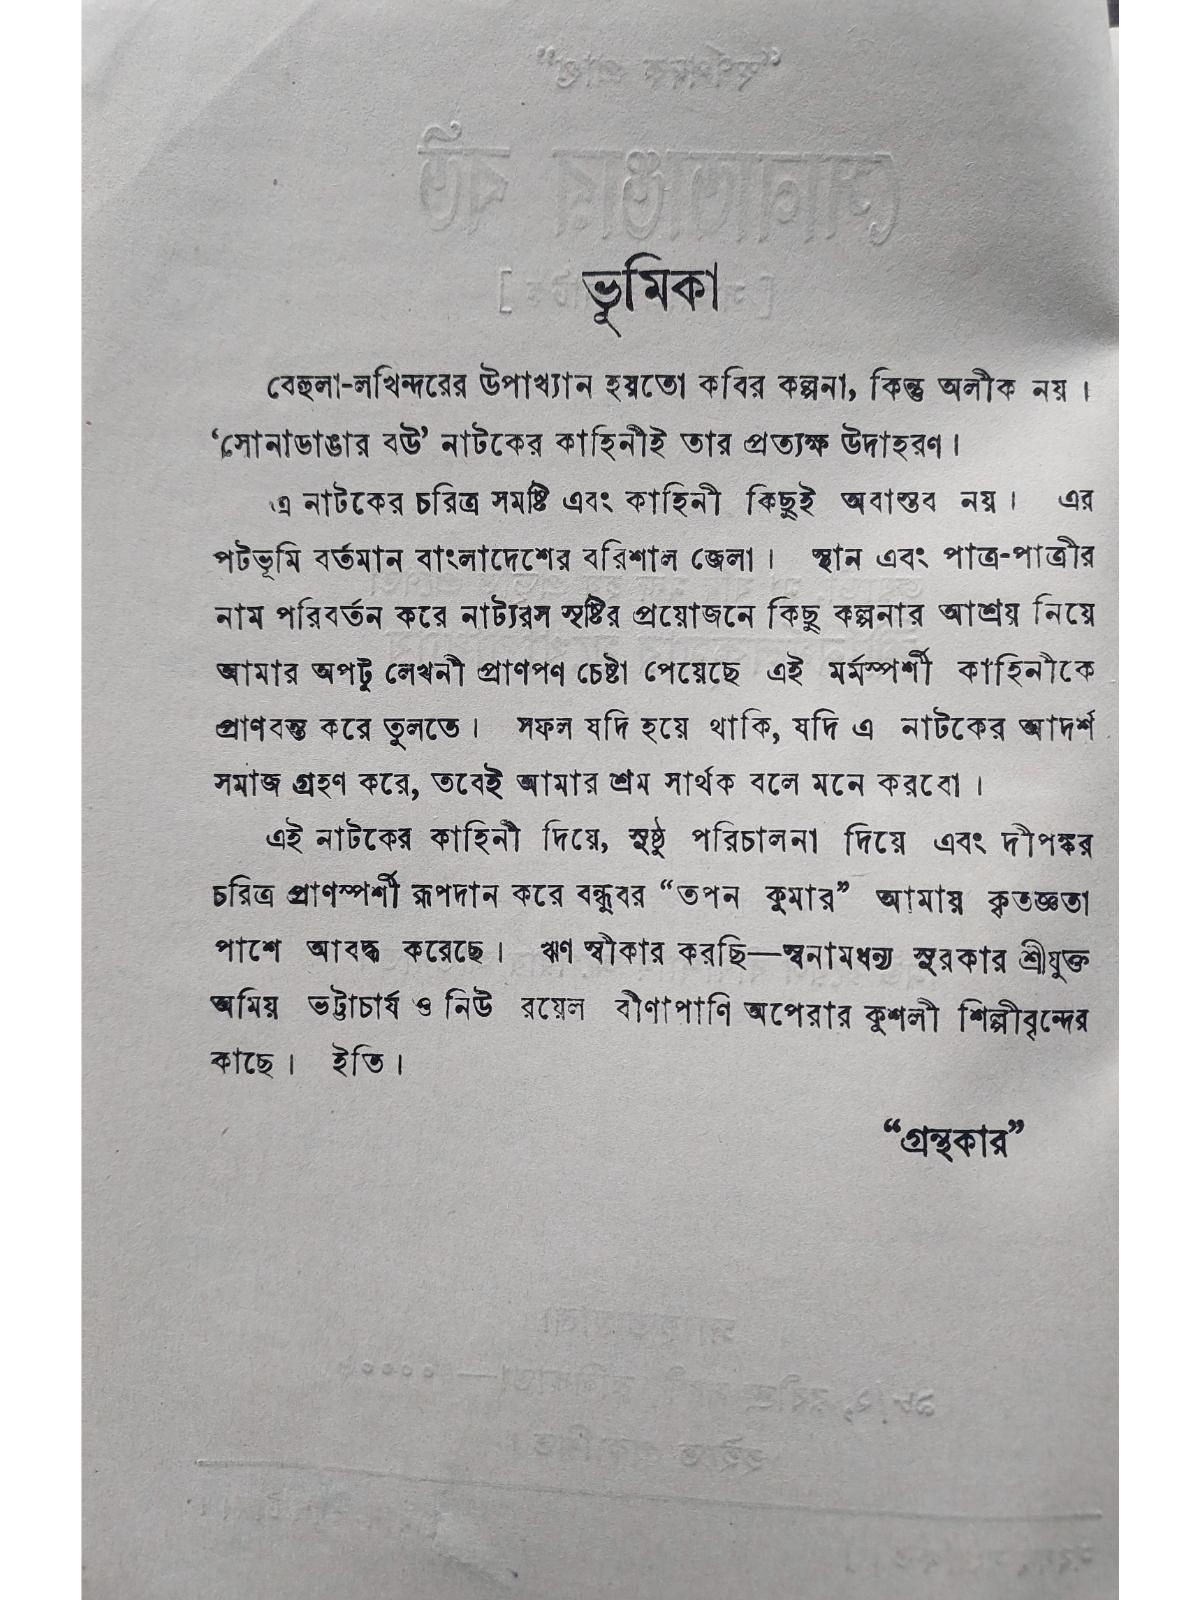 ভূমিকা
বেহুলা-লখিন্দরের উপাখ্যান হয়তো কবির কল্পনা, কিন্তু অলীক নয়।
‘সোনাডাঙার বউ’ নাটকের কাহিনীই তার প্রত্যক্ষ উদাহরণ।
এ নাটকের চরিত্র সমষ্টি এবং কাহিনী কিছুই অবাস্তব নয়। এর
পটভূমি বর্তমান বাংলাদেশের বরিশাল জেলা। স্থান এবং পাত্র-পাত্রীর
নাম পরিবর্তন করে নাট্যরস সৃষ্টির প্রয়োজনে কিছু কল্পনার আশ্রয় নিয়ে
আমার অপটু লেখনী প্রাণপণ চেষ্টা পেয়েছে এই মর্মস্পর্শী কাহিনীকে
প্রাণবন্ত করে তুলতে। সফল যদি হয়ে থাকি, যদি এ নাটকের আদর্শ
সমাজ গ্রহণ করে, তবেই আমার শ্রম সার্থক বলে মনে করবো।
এই নাটকের কাহিনী দিয়ে, সুষ্ঠু পরিচালনা দিয়ে এবং দীপঙ্কর
চরিত্র প্রাণস্পর্শী রূপদান করে বন্ধুবর “তপন কুমার” আমায় কৃতজ্ঞতা
পাশে আবদ্ধ করেছে। ঋণ স্বীকার করছি—স্বনামধন্য সুরকার শ্রীযুক্ত
অমিয় ভট্টাচার্য ও নিউ রয়েল বীণাপাণি অপেরার কুশলী শিল্পীবৃন্দের
কাছে। ইতি।
“গ্রন্থকার”